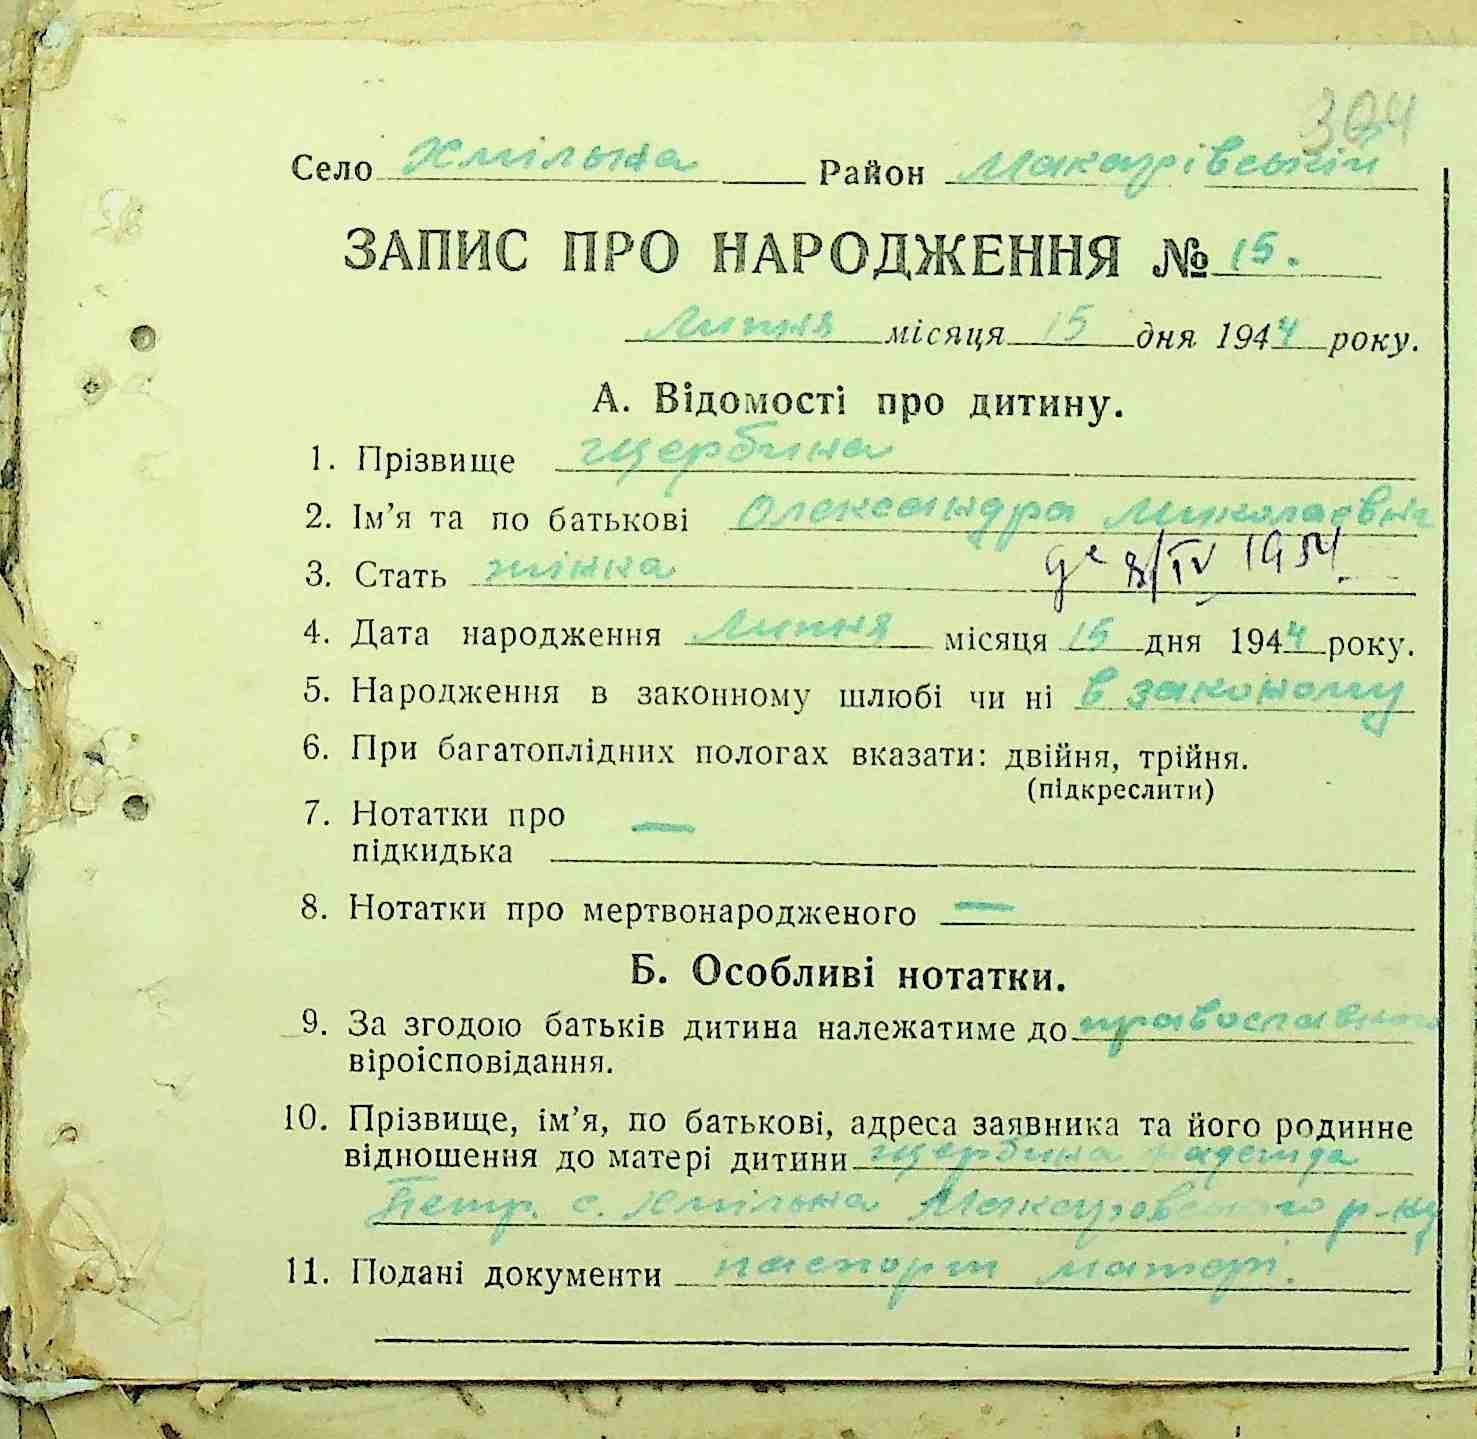 304
Село Хмільна Район Макарівський
ЗАПИС ПРО НАРОДЖЕННЯ № 15.
Липня місяця 15 дня 1944 року.
А. Відомості про дитину.
1. Прізвище Щербина
2. Ім’я та по батькові Олександра Миколаєвна
3. Стать жінка 8/IV 1954.
4. Дата народження Липня місяця 15 дня 1944 року.
5. Народження в законному шлюбі чи ні в законому
6. При багатоплідних пологах вказати: двійня, трійня.
(підкреслити)
7. Нотатки про —
підкидька
8. Нотатки про мертвонародженого —
Б. Особливі нотатки.
9. За згодою батьків дитина належатиме до православного
віроісповідання.
10. Прізвище, ім’я, по батькові, адреса заявника та його родинне
відношення до матері дитини Щербина Надежда
Петр. с. Хмільна Макаровського р-ну
11. Подані документи паспорт матері.